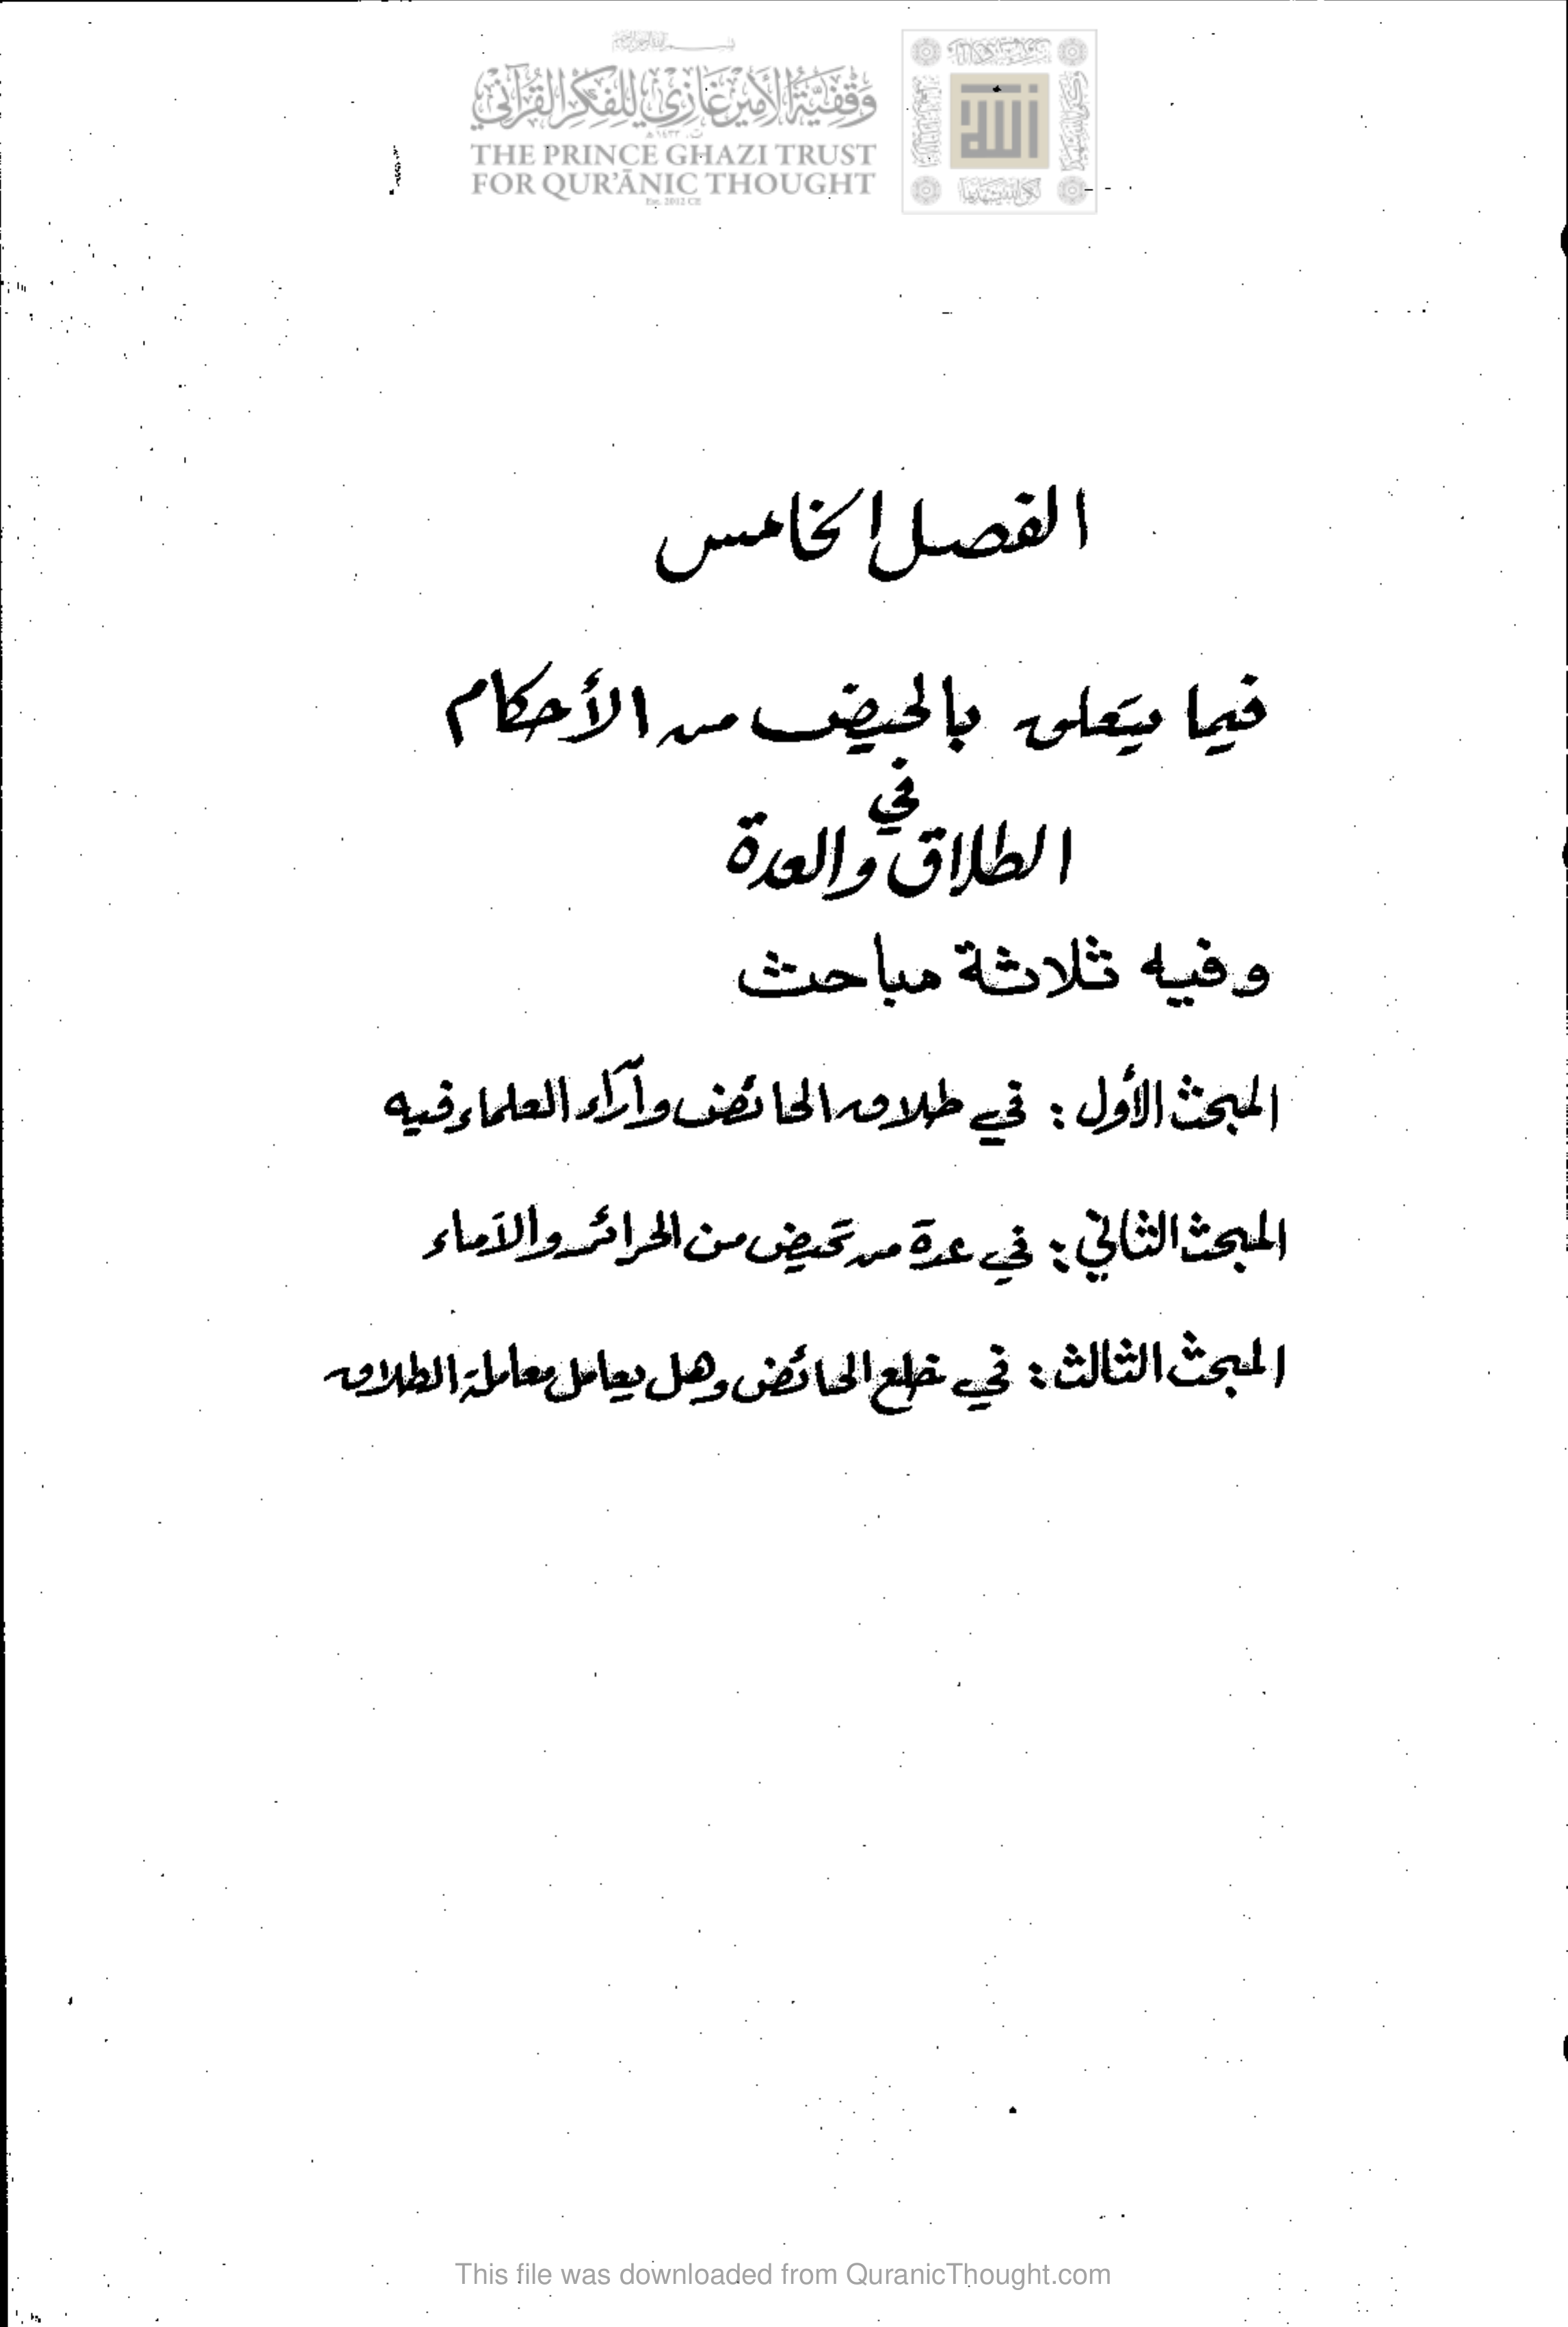 وَقْفِيَّةُ الأَمِيرِ غَازِي لِلْفِكْرِ القُرْآنِيِّ
THE PRINCE GHAZI TRUST
FOR QUR'ĀNIC THOUGHT
Est. 2012 CE
الفصل الخامس
فيما يتعلق بالحيض من الأحكام
في
الطلاق والعدة
وفيه ثلاثة مباحث
المبحث الأول : في طلاق الحائض وآراء العلماء فيه
المبحث الثاني : في عدة من تحيض من الحرائر والآماء
المبحث الثالث : في خلع الحائض وهل يعامل معاملة الطلاق
This file was downloaded from QuranicThought.com